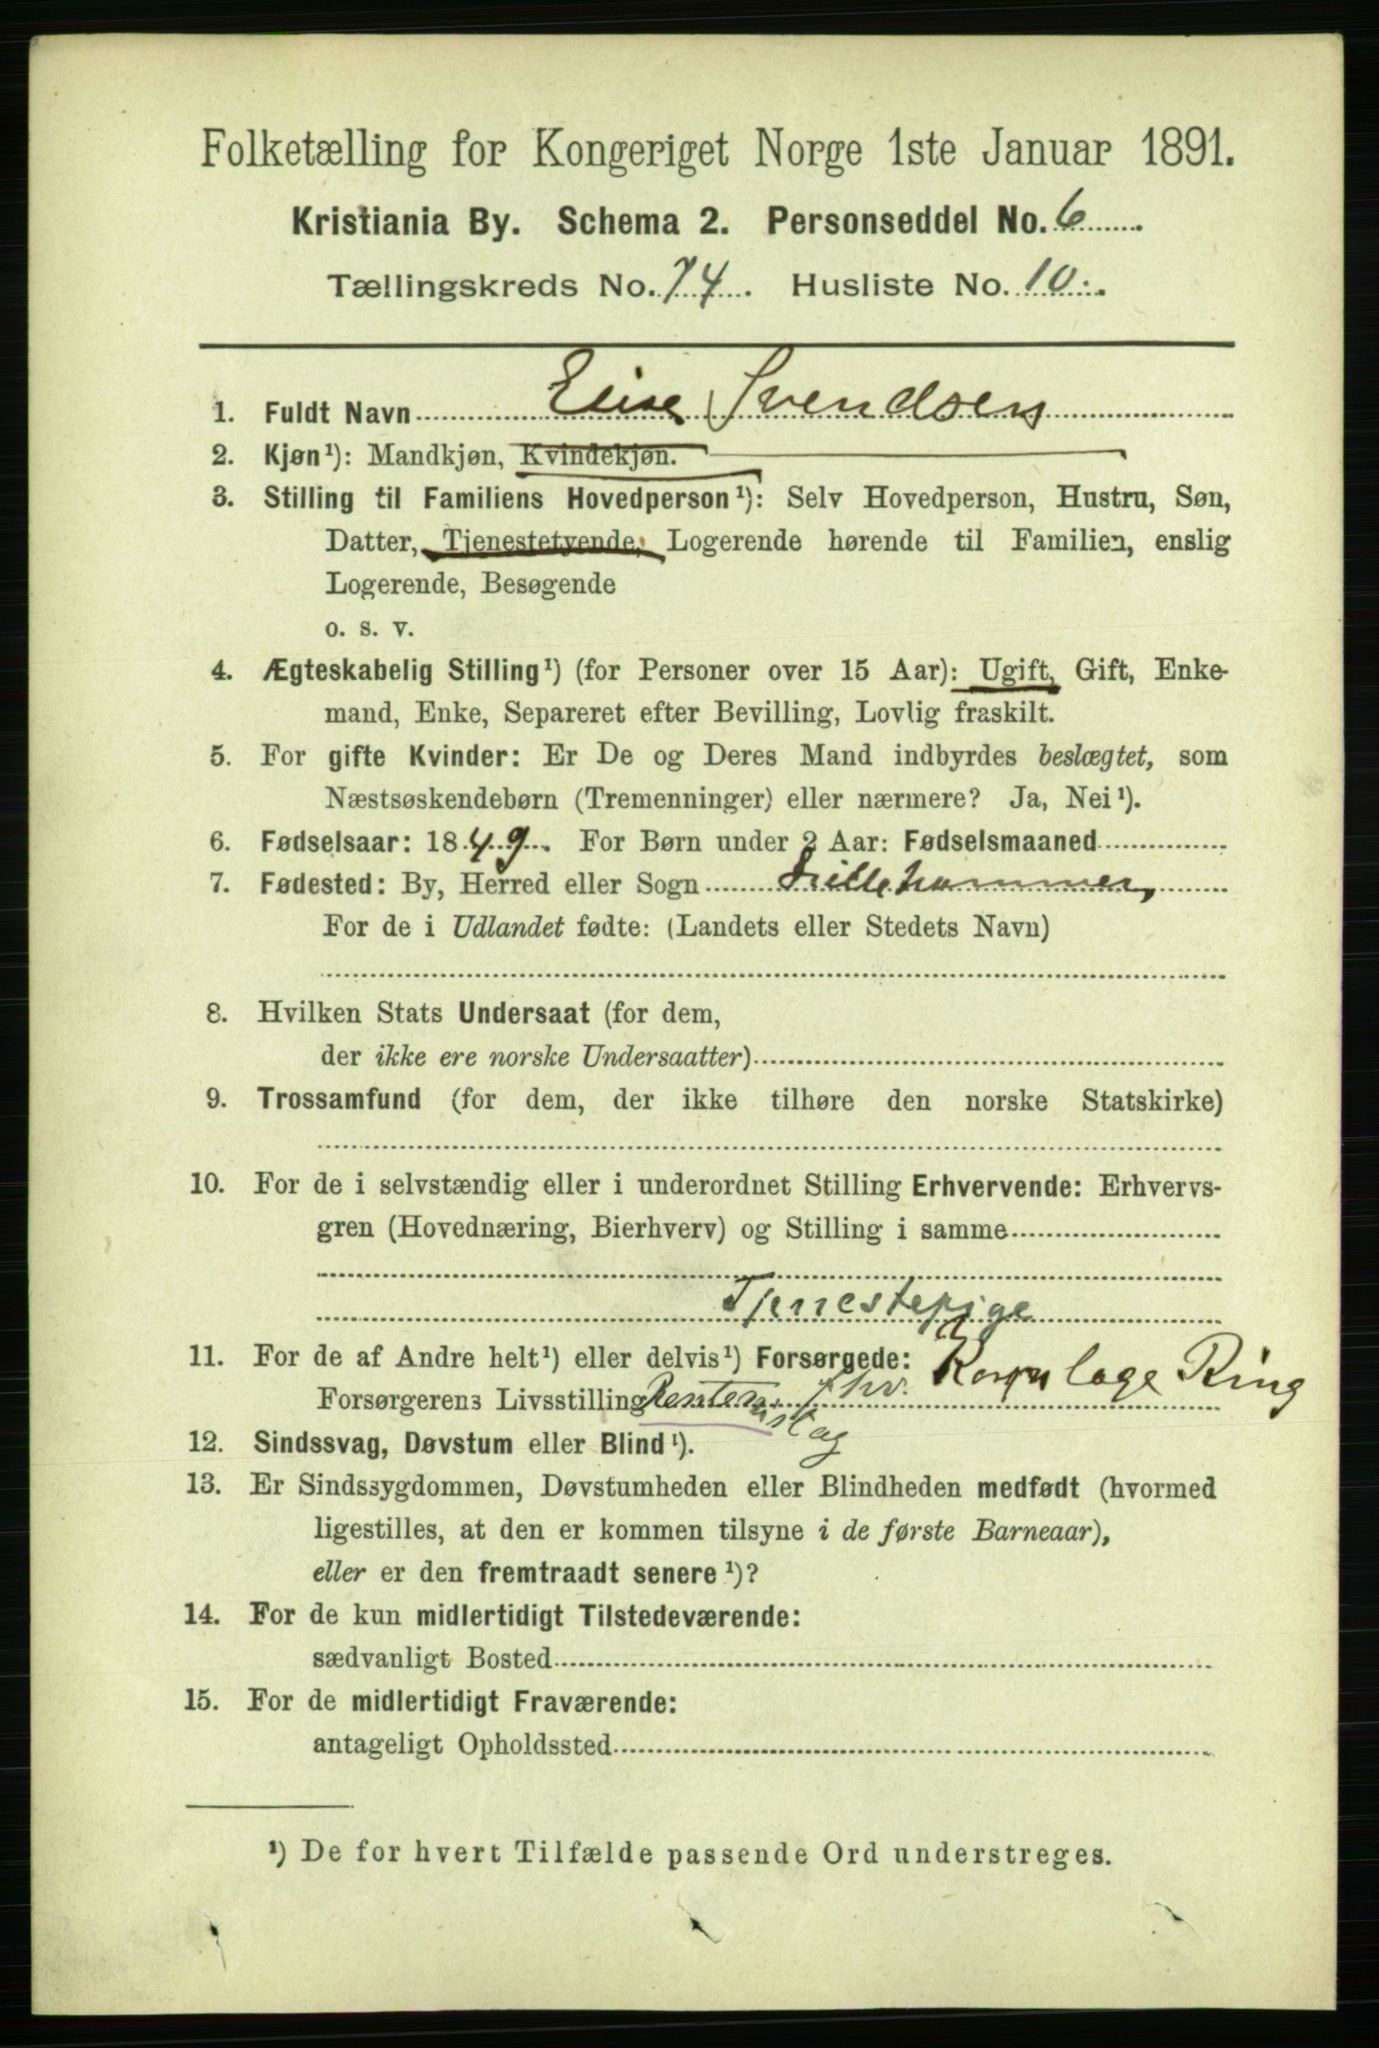 Folketælling for Kongeriget Norge 1ste Januar 1891.
Kristiania By. Schema 2. Personseddel No. 6
Tællingskreds No. 74. Husliste No. 10.
1. Fuldt Navn Elise Svendsen
2. Kjøn¹): Mandkjøn, Kvindekjøn.
3. Stilling til Familiens Hovedperson¹): Selv Hovedperson, Hustru, Søn,
Datter, Tjenestetyende, Logerende hørende til Familien, enslig
Logerende, Besøgende
o. s. v.
4. Ægteskabelig Stilling¹) (for Personer over 15 Aar): Ugift, Gift, Enke-
mand, Enke, Separeret efter Bevilling, Lovlig fraskilt.
5. For gifte Kvinder: Er De og Deres Mand indbyrdes beslægtet, som
Næstsøskendebørn (Tremenninger) eller nærmere? Ja, Nei¹).
6. Fødselsaar: 1849. For Børn under 2 Aar: Fødselsmaaned
7. Fødested: By, Herred eller Sogn Lillehammer,
For de i Udlandet fødte: (Landets eller Stedets Navn)
8. Hvilken Stats Undersaat (for dem,
der ikke ere norske Undersaatter)
9. Trossamfund (for dem, der ikke tilhøre den norske Statskirke)
10. For de i selvstændig eller i underordnet Stilling Erhvervende: Erhvervs-
gren (Hovednæring, Bierhverv) og Stilling i samme
Tjenestepige
11. For de af Andre helt¹) eller delvis¹) Forsørgede:
Forsørgerens Livsstilling fhv. læge Ring
12. Sindssvag, Døvstum eller Blind¹).
13. Er Sindssygdommen, Døvstumheden eller Blindheden medfødt (hvormed
ligestilles, at den er kommen tilsyne i de første Barneaar),
eller er den fremtraadt senere¹)?
14. For de kun midlertidigt Tilstedeværende:
sædvanligt Bosted
15. For de midlertidigt Fraværende:
antageligt Opholdssted
¹) De for hvert Tilfælde passende Ord understreges.